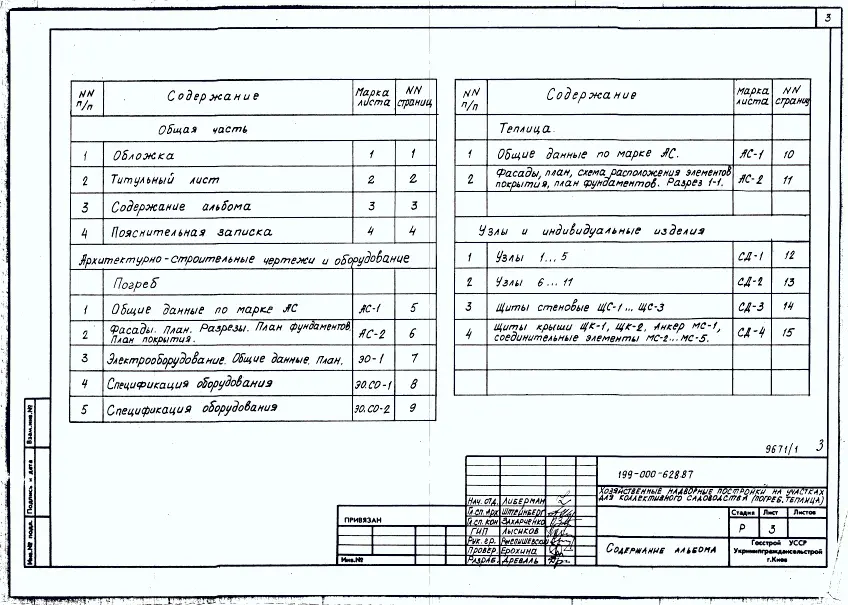 3
NN п/п Содержание Марка листа NN страниц
Общая часть
1 Обложка 1 1
2 Титульный лист 2 2
3 Содержание альбома 3 3
4 Пояснительная записка 4 4
Архитектурно-строительные чертежи и оборудование
Погреб
1 Общие данные по марке АС АС-1 5
2 Фасады. План. Разрезы. План фундаментов. План покрытия. АС-2 6
3 Электрооборудование. Общие данные. План. ЭО-1 7
4 Спецификация оборудования ЭО.СО-1 8
5 Спецификация оборудования ЭО.СО-2 9
NN п/п Содержание Марка листа NN страниц
Теплица
1 Общие данные по марке АС. АС-1 10
2 Фасады, план, схема расположения элементов покрытия, план фундаментов. Разрез 1-1. АС-2 11
Узлы и индивидуальные изделия
1 Узлы 1...5 СД-1 12
2 Узлы 6...11 СД-2 13
3 Щиты стеновые ЩС-1...ЩС-3 СД-3 14
4 Щиты крыши ЩК-1, ЩК-2, Анкер МС-1, соединительные элементы МС-2...МС-5. СД-4 15
Взам.инв.№
Подпись и дата
Инв.№ подл.
9671/1 3
199-000-628.87
Хозяйственные надворные постройки на участках
для коллективного садоводства (погреб, теплица)
Стадия Лист Листов
Р 3
Содержание альбома
Госстрой УССР
Укрмежграждансельстрой
г.Киев
Нач. отд. Либерман
Гл.сп.арх Штейнберг
Гл.сп.кон Захарченко
ГИП Лысиков
Рук. гр.
Провер. Ерохина
Разраб. Древаль
Привязан
Инв.№